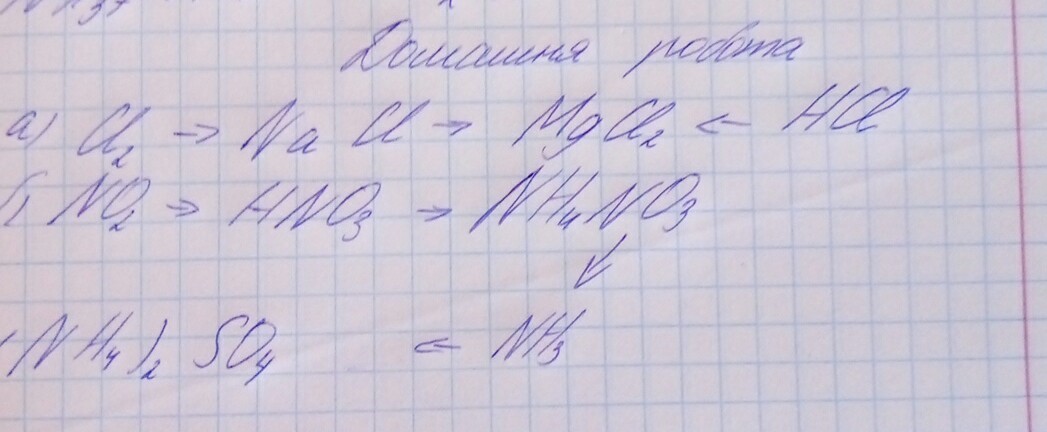 Домашня робота
а) Cl₂ → NaCl → MgCl₂ ← HCl
б) NO₂ → HNO₃ → NH₄NO₃
↓
(NH₄)₂SO₄ ← NH₃